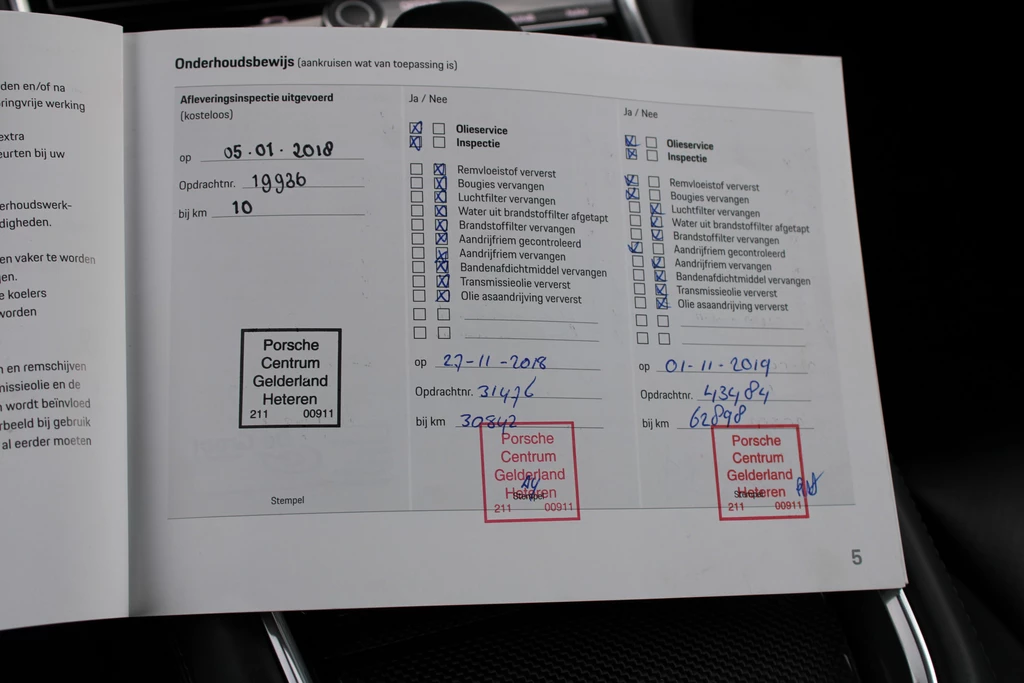 den en/of na
ringvrije werking
extra
eurten bij uw
erhoudswerk-
digheden.
en vaker te worden
gen.
e koelers
worden
n en remschijven
missieolie en de
n wordt beïnvloed
rbeeld bij gebruik
al eerder moeten
Onderhoudsbewijs (aankruisen wat van toepassing is)
Afleveringsinspectie uitgevoerd
(kosteloos)
op 05-01-2018
Opdrachtnr. 19936
bij km 10
Porsche
Centrum
Gelderland
Heteren
211 00911
Stempel
Ja / Nee
Olieservice
Inspectie
Remvloeistof ververst
Bougies vervangen
Luchtfilter vervangen
Water uit brandstoffilter afgetapt
Brandstoffilter vervangen
Aandrijfriem gecontroleerd
Aandrijfriem vervangen
Bandenafdichtmiddel vervangen
Transmissieolie ververst
Olie asaandrijving ververst
op 27-11-2018
Opdrachtnr. 31476
bij km 30842
Porsche
Centrum
Gelderland
Heteren
Stempel
211 00911
Ja / Nee
Olieservice
Inspectie
Remvloeistof ververst
Bougies vervangen
Luchtfilter vervangen
Water uit brandstoffilter afgetapt
Brandstoffilter vervangen
Aandrijfriem gecontroleerd
Aandrijfriem vervangen
Bandenafdichtmiddel vervangen
Transmissieolie ververst
Olie asaandrijving ververst
op 01-11-2019
Opdrachtnr. 43484
bij km 62898
Porsche
Centrum
Gelderland
Heteren
Stempel
211 00911
5